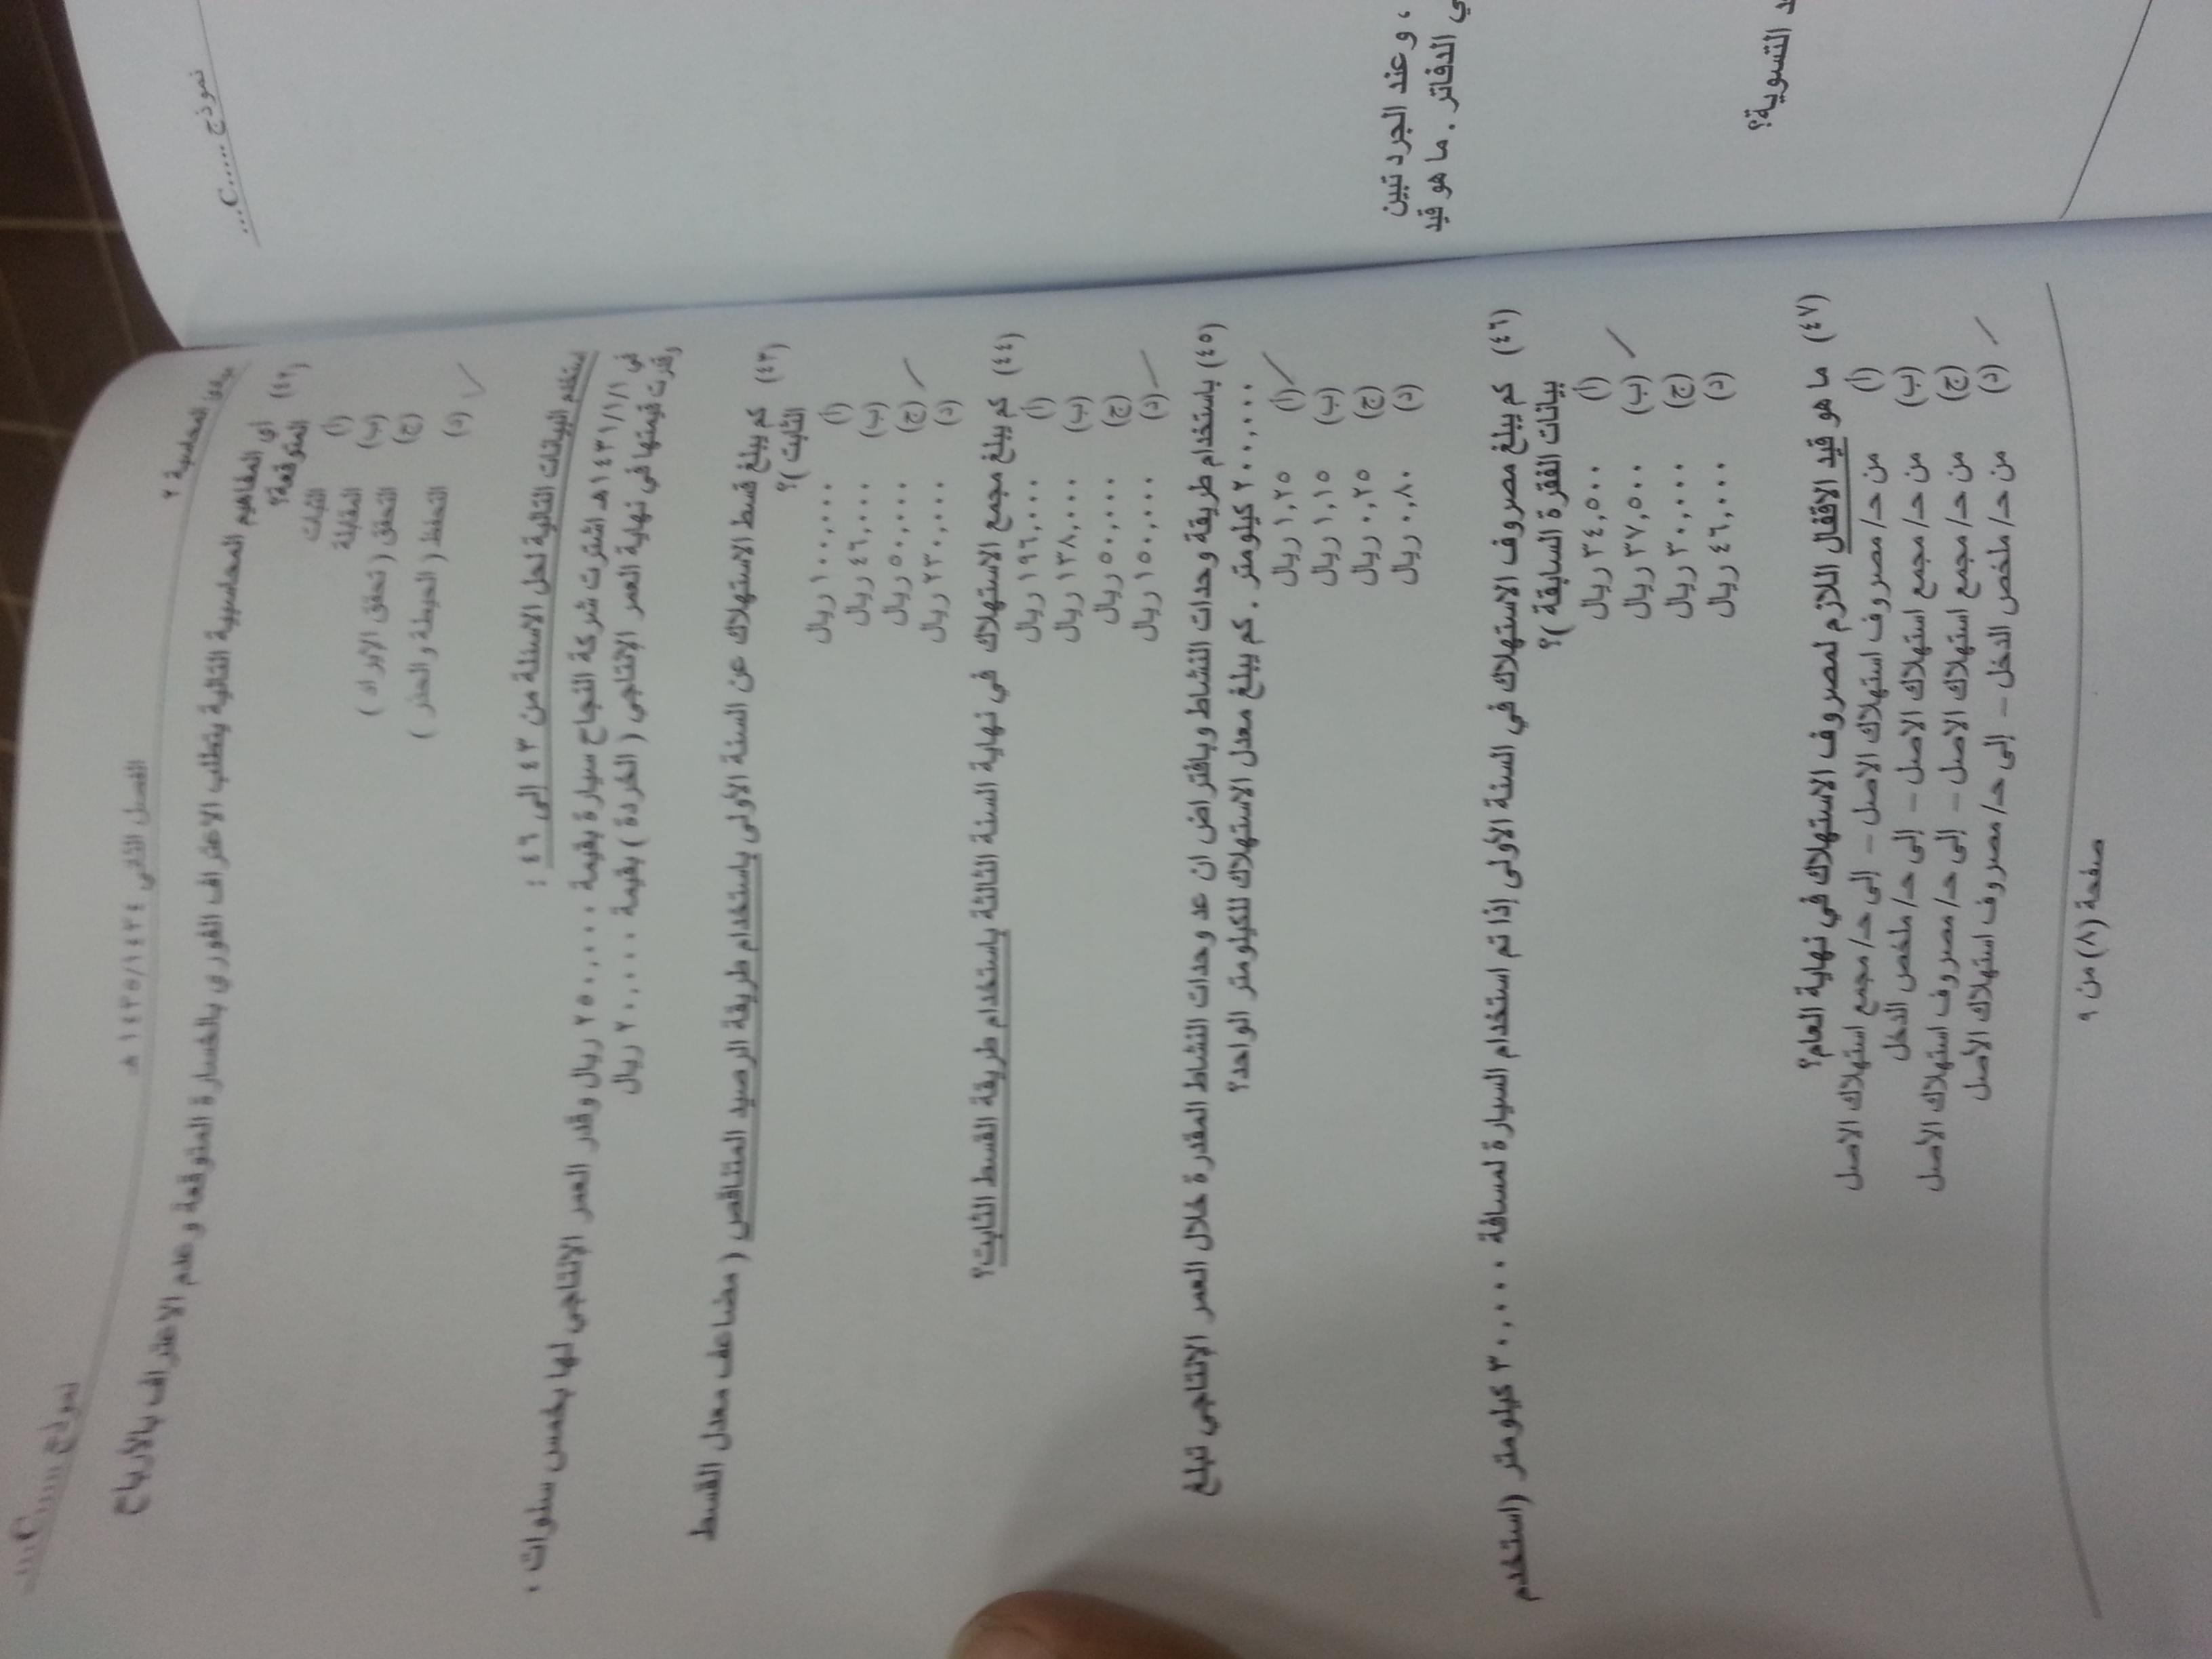 مبادئ المحاسبة ٢
الفصل الثاني ١٤٣٥/١٤٣٤ هـ
نموذج ......C...
(٤٢) أي المفاهيم المحاسبية التالية يتطلب الاعتراف الفوري بالخسارة المتوقعة وعدم الاعتراف بالأرباح
المتوقعة؟
(أ) الثبات
(ب) المقابلة
(ج) التحقق ( تحقق الإيراد )
(د) التحفظ ( الحيطة والحذر )
استخدم البيانات التالية لحل الاسئلة من ٤٣ إلى ٤٦ :
في ١٤٣١/١/١هـ اشترت شركة النجاح سيارة بقيمة ٢٥٠,٠٠٠ ريال وقدر العمر الإنتاجي لها بخمس سنوات ،
وقدرت قيمتها في نهاية العمر الإنتاجي ( الخردة ) بقيمة ٢٠,٠٠٠ ريال
(٤٣) كم يبلغ قسط الاستهلاك عن السنة الأولى باستخدام طريقة الرصيد المتناقص ( مضاعف معدل القسط
الثابت )؟
(أ) ١٠٠,٠٠٠ ريال
(ب) ٤٦,٠٠٠ ريال
(ج) ٥٠,٠٠٠ ريال
(د) ٢٣٠,٠٠٠ ريال
(٤٤) كم يبلغ مجمع الاستهلاك في نهاية السنة الثالثة باستخدام طريقة القسط الثابت؟
(أ) ١٩٦,٠٠٠ ريال
(ب) ١٣٨,٠٠٠ ريال
(ج) ٥٠,٠٠٠ ريال
(د) ١٥٠,٠٠٠ ريال
(٤٥) باستخدام طريقة وحدات النشاط وبافتراض ان عد وحدات النشاط المقدرة خلال العمر الإنتاجي تبلغ
٢٠٠,٠٠٠ كيلومتر . كم يبلغ معدل الاستهلاك للكيلومتر الواحد؟
(أ) ١,٢٥ ريال
(ب) ١,١٥ ريال
(ج) ٠,٢٥ ريال
(د) ٠,٨٠ ريال
(٤٦) كم يبلغ مصروف الاستهلاك في السنة الأولى إذا تم استخدام السيارة لمسافة ٣٠,٠٠٠ كيلومتر (استخدم
بيانات الفقرة السابقة )؟
(أ) ٣٤,٥٠٠ ريال
(ب) ٣٧,٥٠٠ ريال
(ج) ٣٠,٠٠٠ ريال
(د) ٤٦,٠٠٠ ريال
(٤٧) ما هو قيد الاقفال اللازم لمصروف الاستهلاك في نهاية العام؟
(أ) من حـ/ مصروف استهلاك الاصل – إلى حـ/ مجمع استهلاك الاصل
(ب) من حـ/ مجمع استهلاك الاصل – إلى حـ/ ملخص الدخل
(ج) من حـ/ مجمع استهلاك الاصل – إلى حـ/ مصروف استهلاك الأصل
(د) من حـ/ ملخص الدخل – إلى حـ/ مصروف استهلاك الأصل
صفحة (٨) من ٩
نموذج .....C...
، وعند الجرد تبين
ي الدفاتر . ما هو قيد
د التسوية؟